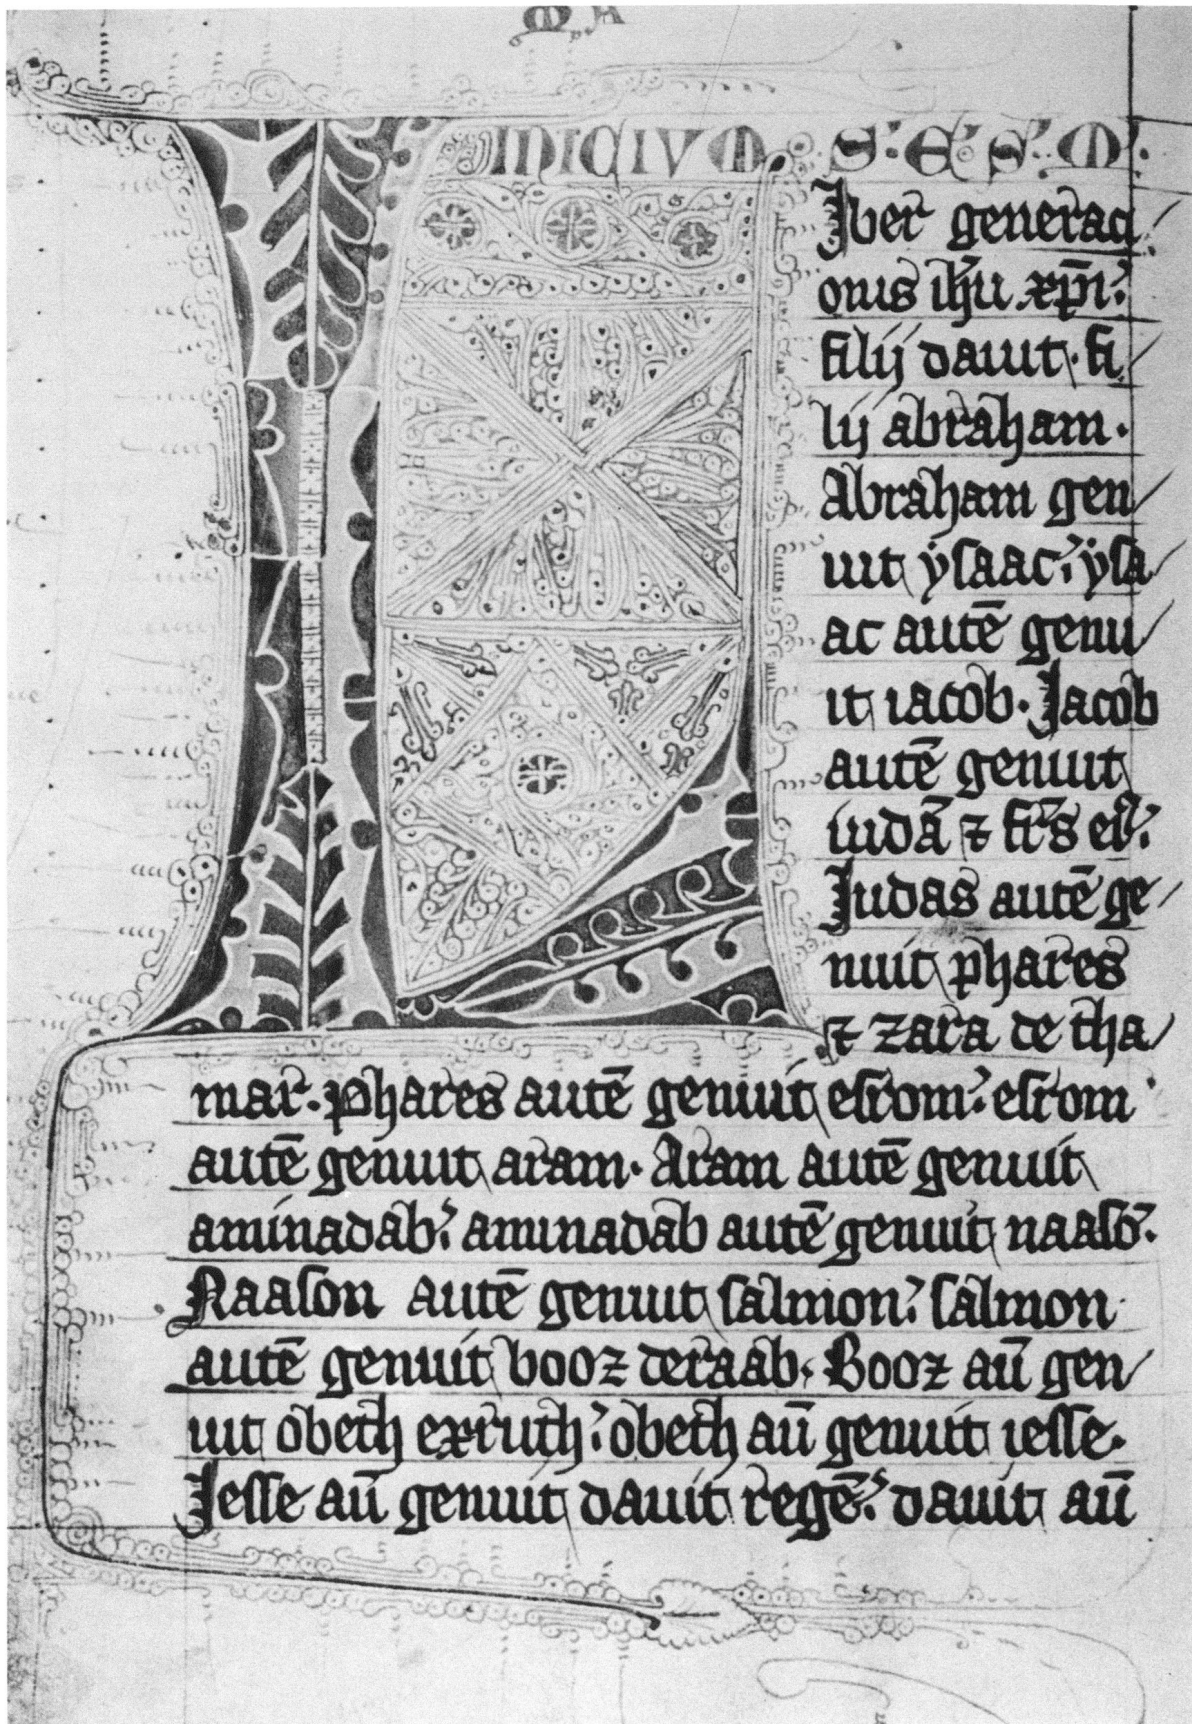 MA
INICIVM S. E. S. M.
Iber generaci
onis ihu xpi.
filij dauit. fi
lij abraham.
Abraham gen
uit ysaac. ysa
ac autē genu
it iacob. Jacob
autē genuit
iudā ⁊ fr̄s ei⁹.
Judas autē ge
nuit phares
⁊ zara de tha
mar. phares autē genuit esrom. esrom
autē genuit aram. Aram autē genuit
aminadab. aminadab autē genuit naasō.
Naason autē genuit salmon. salmon
autē genuit booz deraab. Booz aū gen
uit obeth exruth. obeth aū genuit iesse.
Jesse aū genuit dauit regē. dauit aū